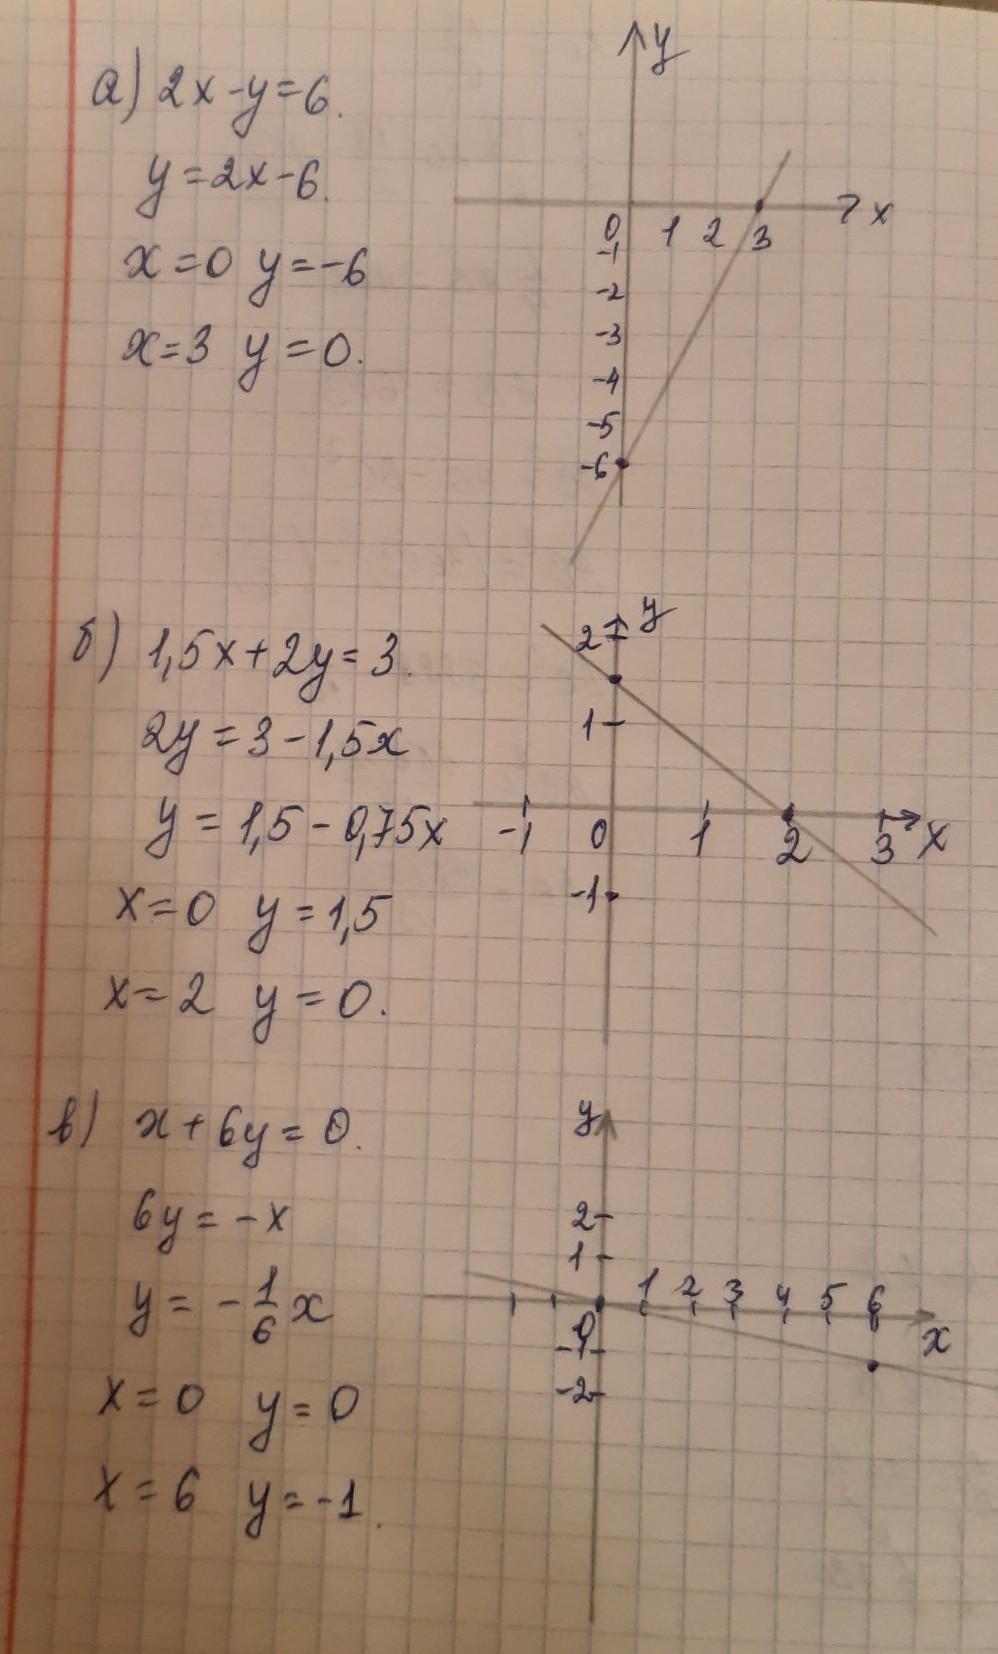 а) 2x-y=6.
y=2x-6.
x=0 y=-6
x=3 y=0.
y
x
0 1 2 3
-1
-2
-3
-4
-5
-6
б) 1,5x+2y=3.
2y=3-1,5x
y=1,5-0,75x
x=0 y=1,5
x=2 y=0.
y
2
1
-1 0 1 2 3 x
-1
в) x+6y=0.
6y=-x
y=-1/6x
x=0 y=0
x=6 y=-1.
y
2
1
1 2 3 4 5 6
0 x
-1
-2